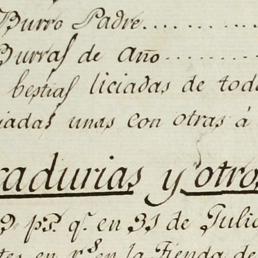 Burro Padre..........
Burras de Año..........
bestias liciadas de tod
iadas unas con otras á
cadurias y otro
9 p.s q.e en 31 de Julio
en r.s en la Tienda de